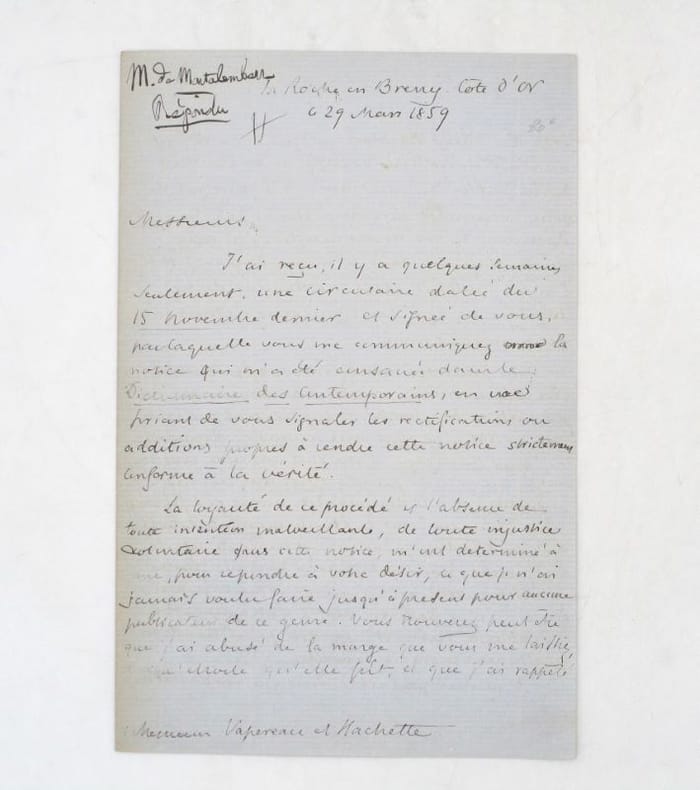 M. de Montalembert
Répondu
La Roche en Breny. Côte d'Or
29 Mars 1859
Messieurs,
J'ai reçu, il y a quelques semaines
seulement, une circulaire datée du
15 novembre dernier et signée de vous,
par laquelle vous me communiquez la
notice qui m'a été consacrée dans le
Dictionnaire des Contemporains, en me
priant de vous signaler les rectifications ou
additions propres à rendre cette notice strictement
conforme à la vérité.
La loyauté de ce procédé et l'absence de
toute intention malveillante, de toute injustice
volontaire dans cette notice, m'ont déterminé à
pour répondre à votre désir, ce que je n'ai
jamais voulu faire jusqu'à présent pour aucune
publication de ce genre. Vous trouverez peut être
que j'ai abusé de la marge que vous me laissiez,
qu'elle fût, et que j'ai rappelé
Messieurs Vapereau et Hachette